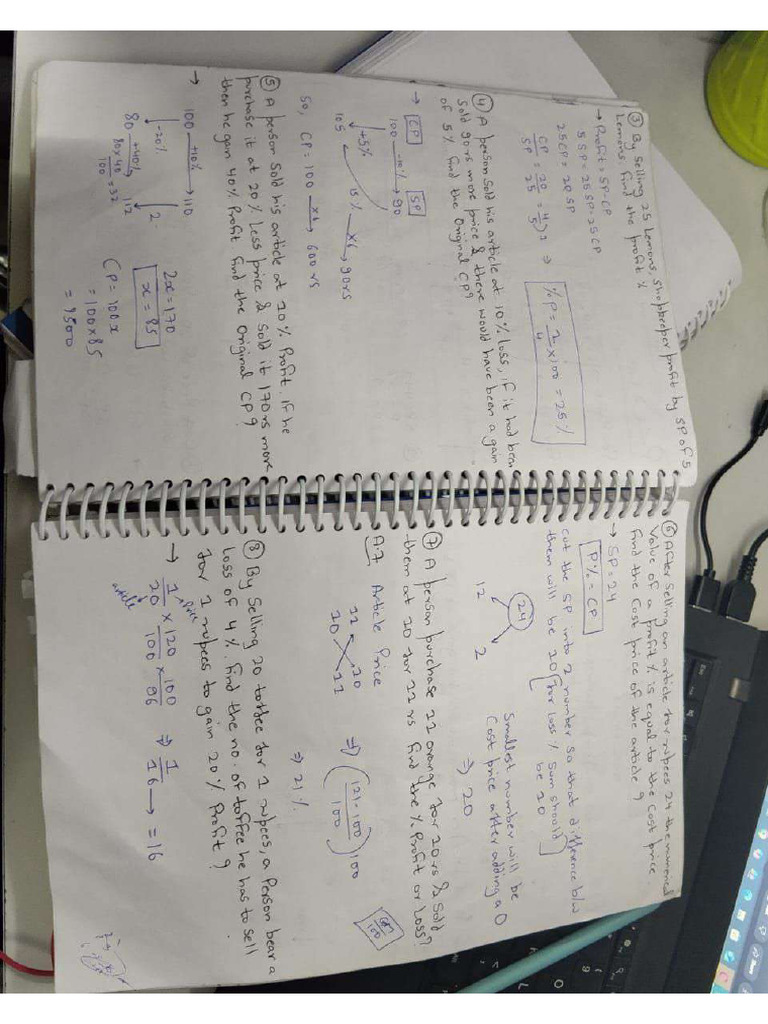 ③ By selling 25 lemons, shopkeeper profit by SP of 5
lemons. find the profit %
→ Profit = SP - CP
5 SP = 25 SP - 25 CP
25 CP = 20 SP
CP/SP = 20/25 = 4/5 ) 1 ⇒ %P = 1/4 x 100 = 25 %
④ A person sold his article at 10 % loss, if it had been
sold 90 rs more price & there would have been a gain
of 5 % find the original CP?
→ CP SP
100 -10% → 90
+5%
105 15 % x6 → 90rs
So, CP = 100 x6 → 600 rs
⑤ A person sold his article at 10 % Profit, if he
purchase it at 20 % less price & sold it 170 rs more
then he gain 40 % profit find the original CP?
→ 100 +10% → 110
-20% 2
80 +40% → 112
80 x 40 / 100 = 32
2x = 170
x = 85
CP = 100x
= 100 x 85
= 8500
⑥ After selling an article for rupees 24 the numerical
value of a profit % is equal to the cost price.
find the cost price of the article ?
→ SP = 24
P% = CP
cut the SP into 2 number so that difference b/w
them will be 10 [for loss % sum should be 10]
24
12 2
Smallest number will be
Cost price after adding a 0
⇒ 20
⑦ A person purchase 11 orange for 10 rs & sold
them at 10 for 11 rs find the % profit or loss?
A.7 Article Price
11 10
10 11
⇒ (121 - 100 / 100) 100
⇒ 21 %
⑧ By selling 20 toffee for 1 rupees, a person bear a
loss of 4 %. find the no. of toffee he has to sell
for 1 rupees to gain 20 % profit ?
→ 1/20 x 120/100 x 100/96 ⇒ 1/16 → = 16
Price
article